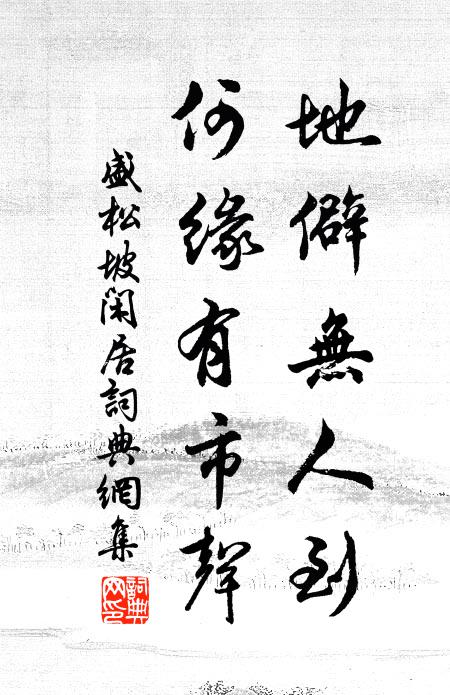 地僻無人到
何緣有市聲
盛松坡閑居詞典網集
詞典網印